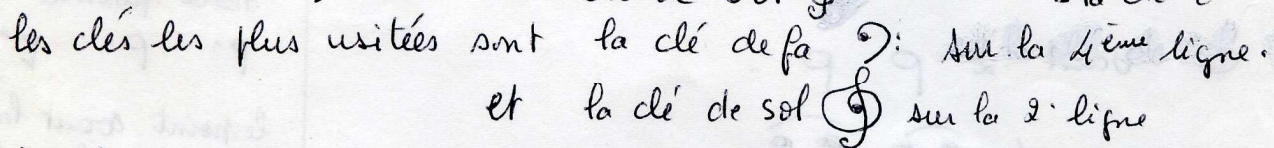 les clés les plus usitées sont la clé de fa 𝄢 sur la 4ème ligne.
et la clé de sol 𝄞 sur la 2. ligne